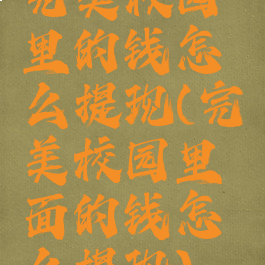 完美校园
里的钱怎
么提现(完
美校园里
面的钱怎
么提现)